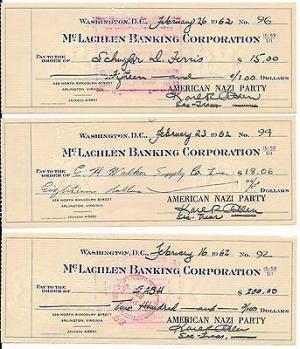 WASHINGTON, D.C., February 26 1962 No. 96
McLACHLEN BANKING CORPORATION 15-59
PAY TO THE
ORDER OF Schuyler D. Ferris $ 15.00
Fifteen and 0/100 DOLLARS
928 NORTH RANDOLPH STREET
ARLINGTON, VIRGINIA
AMERICAN NAZI PARTY
JACKSON
WASHINGTON, D.C., February 23 1962 No. 94
McLACHLEN BANKING CORPORATION 15-59
PAY TO THE
ORDER OF Walker Supply Co. Inc. $ 18.06
Eighteen DOLLARS
928 NORTH RANDOLPH STREET
ARLINGTON, VIRGINIA
AMERICAN NAZI PARTY
JACKSON
WASHINGTON, D.C., February 16 1962 No. 92
McLACHLEN BANKING CORPORATION 15-59
PAY TO THE
ORDER OF CASH $ 200.00
Two Hundred and DOLLARS
928 NORTH RANDOLPH STREET
ARLINGTON, VIRGINIA
AMERICAN NAZI PARTY
JACKSON